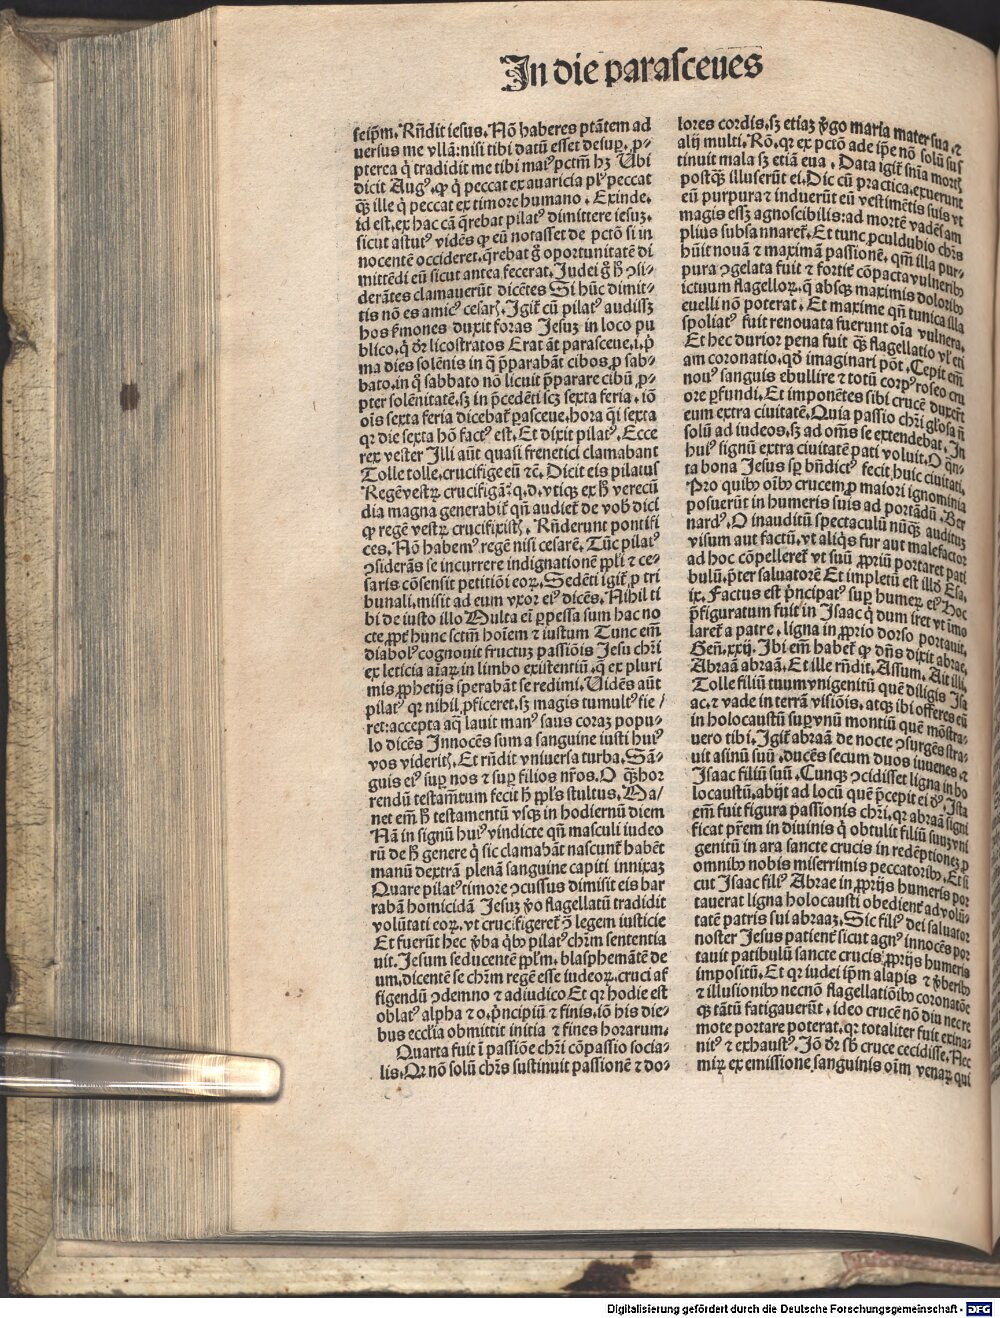 In die parasceues
seip̄m. Rn̄dit iesus. Nō haberes ptātem ad
uersus me vllā: nisi tibi datū esset desuꝑ. ꝓ-
pterea q̇ tradidit me tibi maiꝰ pctm̄ hꝫ Ubi
dicit Augꝰ. ꝙ q̇ peccat ex auaricia plꝰ peccat
q̄ꝫ ille q̇ peccat ex timore humano. Exinde.
id est. ex hac cā q̄rebat pilatꝰ dimittere iesuꝫ.
sicut astutꝰ vidēs ꝙ eū notasset de pctō si in
nocentē occideret. q̄rebat g̊ oportunitatē di
mittēdi eū sicut antea fecerat. Iudei g̊ h̄ ꝯsi-
derātes clamauerūt dicētes Si hūc dimit-
tis nō es amicꝰ cesarꝭ. Igit̄ cū pilatꝰ audissꝫ
hos ẜmones duxit foras Jesuꝫ in loco pu
blico. q̇ dr̄ licostratos Erat āt parasceue. i. p̄
ma dies solēnis in q̄ p̄parabāt cibos ꝓ sab-
bato. in q̊ sabbato nō licuit p̄parare cibū ꝓ-
pter solēnitatē. sꝫ in p̄cedēti scꝫ sexta feria. iō
oīs sexta feria dicebat̄ ꝑasceue. hora q̄si sexta
qꝛ die sexta hō factꝰ est. Et dixit pilatꝰ. Ecce
rex vester Illi aūt quasi frenetici clamabant
Tolle tolle. crucifige eū ⁊c̄. Dicit eis pilatus
Regē vestrꝝ crucifigā: q. d. vtiqꝫ ex h̄ verecū
dia magna generabit̄ qn̄ audiet̄ de vob̄ dici
ꝙ regē vestrꝝ crucifixistꝭ. Rn̄derunt pontifi
ces. Nō habemꝰ regē nisi cesarē. Tūc pilatꝰ
ꝯsiderās se incurrere indignationē ppl̄i ⁊ ce-
saris cōsensit petitiōi eoꝝ. Sedēti igit̄ ꝓ tri
bunali. misit ad eum vxor eiꝰ dicēs. Nihil ti
bi de iusto illo Multa em̄ ꝑpessa sum hac no
cte. ꝓpt̄ hunc sctm̄ hoīem ⁊ iustum Tunc em̄
diabolꝰ cognouit fructuꝫ passiōis Jesu chr̄i
ex leticia aīaꝝ in limbo existentiū. q̄ ex pluri
mis ꝓphetijs sperabāt se redimi. Uidēs aūt
pilatꝰ qꝛ nihil ꝓficeret. sꝫ magis tumultꝰ fie/
ret: accepta aq̄ lauit manꝰ suas coraꝫ popu-
lo dicēs Innocēs sum a sanguine iusti huiꝰ
vos videritꝭ. Et rn̄dit vniuersa turba. Sā-
guis eiꝰ suꝑ nos ⁊ suꝑ filios nr̄os. O q̄ꝫ hor
rendū testam̄tum fecit h̄ ppl̄s stultus. Ma/
net em̄ h̄ testamentū vsqꝫ in hodiernū diem
Nā in signū huiꝰ vindicte qn̄ masculi iudeo
rū de h̄ genere q̇ sic clamabāt nascunt̄ habēt
manū dextrā plenā sanguine capiti innixaꝫ
Quare pilatꝰ timore ꝯcussus dimisit eis bar
rabā homicidā Jesuꝫ v̊o flagellatū tradidit
volūtati eoꝝ. vt crucifigeret̄ ꝯ̄ legem iusticie
Et fuerūt hec v̄ba q̇bꝫ pilatꝰ chr̄m sententia
uit. Jesum seducentē ppl̄m. blasphemātē de
um. dicentē se chr̄m regē esse iudeoꝝ. cruci af
figendū ꝯdemno ⁊ adiudico Et qꝛ hodie est
oblatꝰ alpha ⁊ o. p̄ncipiū ⁊ finis. iō his die-
bus eccl̄ia obmittit initia ⁊ fines horarum.
Quarta fuit ī passiōe chr̄i cōpassio socia-
lis. Qꝛ nō solū chr̄s sustinuit passionē ⁊ do-
lores cordis. sꝫ etiaꝫ v̊go maria mater sua. ⁊
alij multi. Rō. qꝛ ex pctō ade ip̄e nō solū sus
tinuit mala sꝫ etiā eua. Data igit̄ sn̄ia mortꝭ
postq̄ꝫ illuserūt ei. Dic cū practica. exuerunt
eū purpura ⁊ induerūt eū vestimētis suis vt
magis essꝫ agnoscibilis: ad mortē vadēs am
plius subsannaret̄. Et tunc ꝓculdubio chr̄s
h̄uit nouā ⁊ maximā passionē. qm̄ illa pur-
pura ꝯgelata fuit ⁊ fortit̄ cōpacta vulneribꝫ
ictuum flagelloꝝ. q̄ absqꝫ maximis doloribꝫ
euelli nō poterat. Et maxime qn̄ tunica illa
spoliatꝰ fuit renouata fuerunt oīa vulnera.
Et hec durior pena fuit q̄ꝫ flagellatio vl̓ eti
am coronatio. qd̓ imaginari pōt. Cepit em̄
nouꝰ sanguis ebullire ⁊ totū corpꝰ roseo cru
ore ꝑfundi. Et imponētes sibi crucē duxer̄t
eum extra ciuitatē. Quia passio chr̄i glosa n̄
solū ad iudeos. sꝫ ad om̄s se extendebat. In
huiꝰ signū extra ciuitatē pati voluit. O q̄n-
ta bona Jesus sꝑ bn̄dictꝰ fecit huic ciuitati.
Pro quibꝫ oībꝫ crucem ꝓ maiori ignominia
posuerūt in humeris suis ad portādū. Ber
nardꝰ. O inauditū spectaculū nūq̄ꝫ audituꝫ
visum aut factū. vt aliq̇s fur aut malefactor
ad hoc cōpelleret̄ vt suū ꝓpriū portaret pati
bulū. p̄ter saluatorē Et impletū est illd̓ Esa.
ix. Factus est p̄ncipatꝰ suꝑ humeꝝ eiꝰ Hoc
p̄figuratum fuit in Isaac q̇ dum iret vt īmo
laret̄ a patre. ligna in ꝓprio dorso portauit.
Gen̄. xxij. Ibi em̄ habet̄ ꝙ dn̄s dixit abrae.
Abraā abraā. Et ille rn̄dit. Assum. Ait illi.
Tolle filiū tuum vnigenitū quē diligis Isa
ac. ⁊ vade in terrā visiōis. atqꝫ ibi offeres eū
in holocaustū suꝑ vnū montiū quē mōstra-
uero tibi. Igit̄ abraā de nocte ꝯsurgēs stra-
uit asinū suū. ducēs secum duos iuuenes. ⁊
Isaac filiū suū. Cunqꝫ ꝯcidisset ligna in ho
locaustū. abijt ad locū quē p̄cepit ei dꝰ. Ista
em̄ fuit figura passionis chr̄i. qꝛ abraā signi
ficat pr̄em in diuinis q̇ obtulit filiū suuꝫ vni
genitū in ara sancte crucis in redēptionez ꝓ
omnibꝫ nobis miserrimis peccatoribꝫ. Et si
cut Isaac filiꝰ Abrae in ꝓprijs humeris por
tauerat ligna holocausti obedient̄ ad volū-
tatē patris sui abraaꝫ. Sic filiꝰ dei saluator
noster Jesus patient̄ sicut agnꝰ innocēs por
tauit patibulū sancte crucis ꝓprijs humeris
impositū. Et qꝛ iudei ip̄m alapis ⁊ v̄beribꝫ
⁊ illusionibꝫ necnō flagellatiōibꝫ coronatōe
qꝫ tātū fatigauerūt. ideo crucē nō diu nec re
mote portare poterat. qꝛ totaliter fuit exina-
nitꝰ ⁊ exhaustꝰ. Iō dr̄ sb̄ cruce cecidisse. Nec
miꝝ ex emissione sanguinis oīm venaꝝ qui
Digitalisierung gefördert durch die Deutsche Forschungsgemeinschaft - DFG